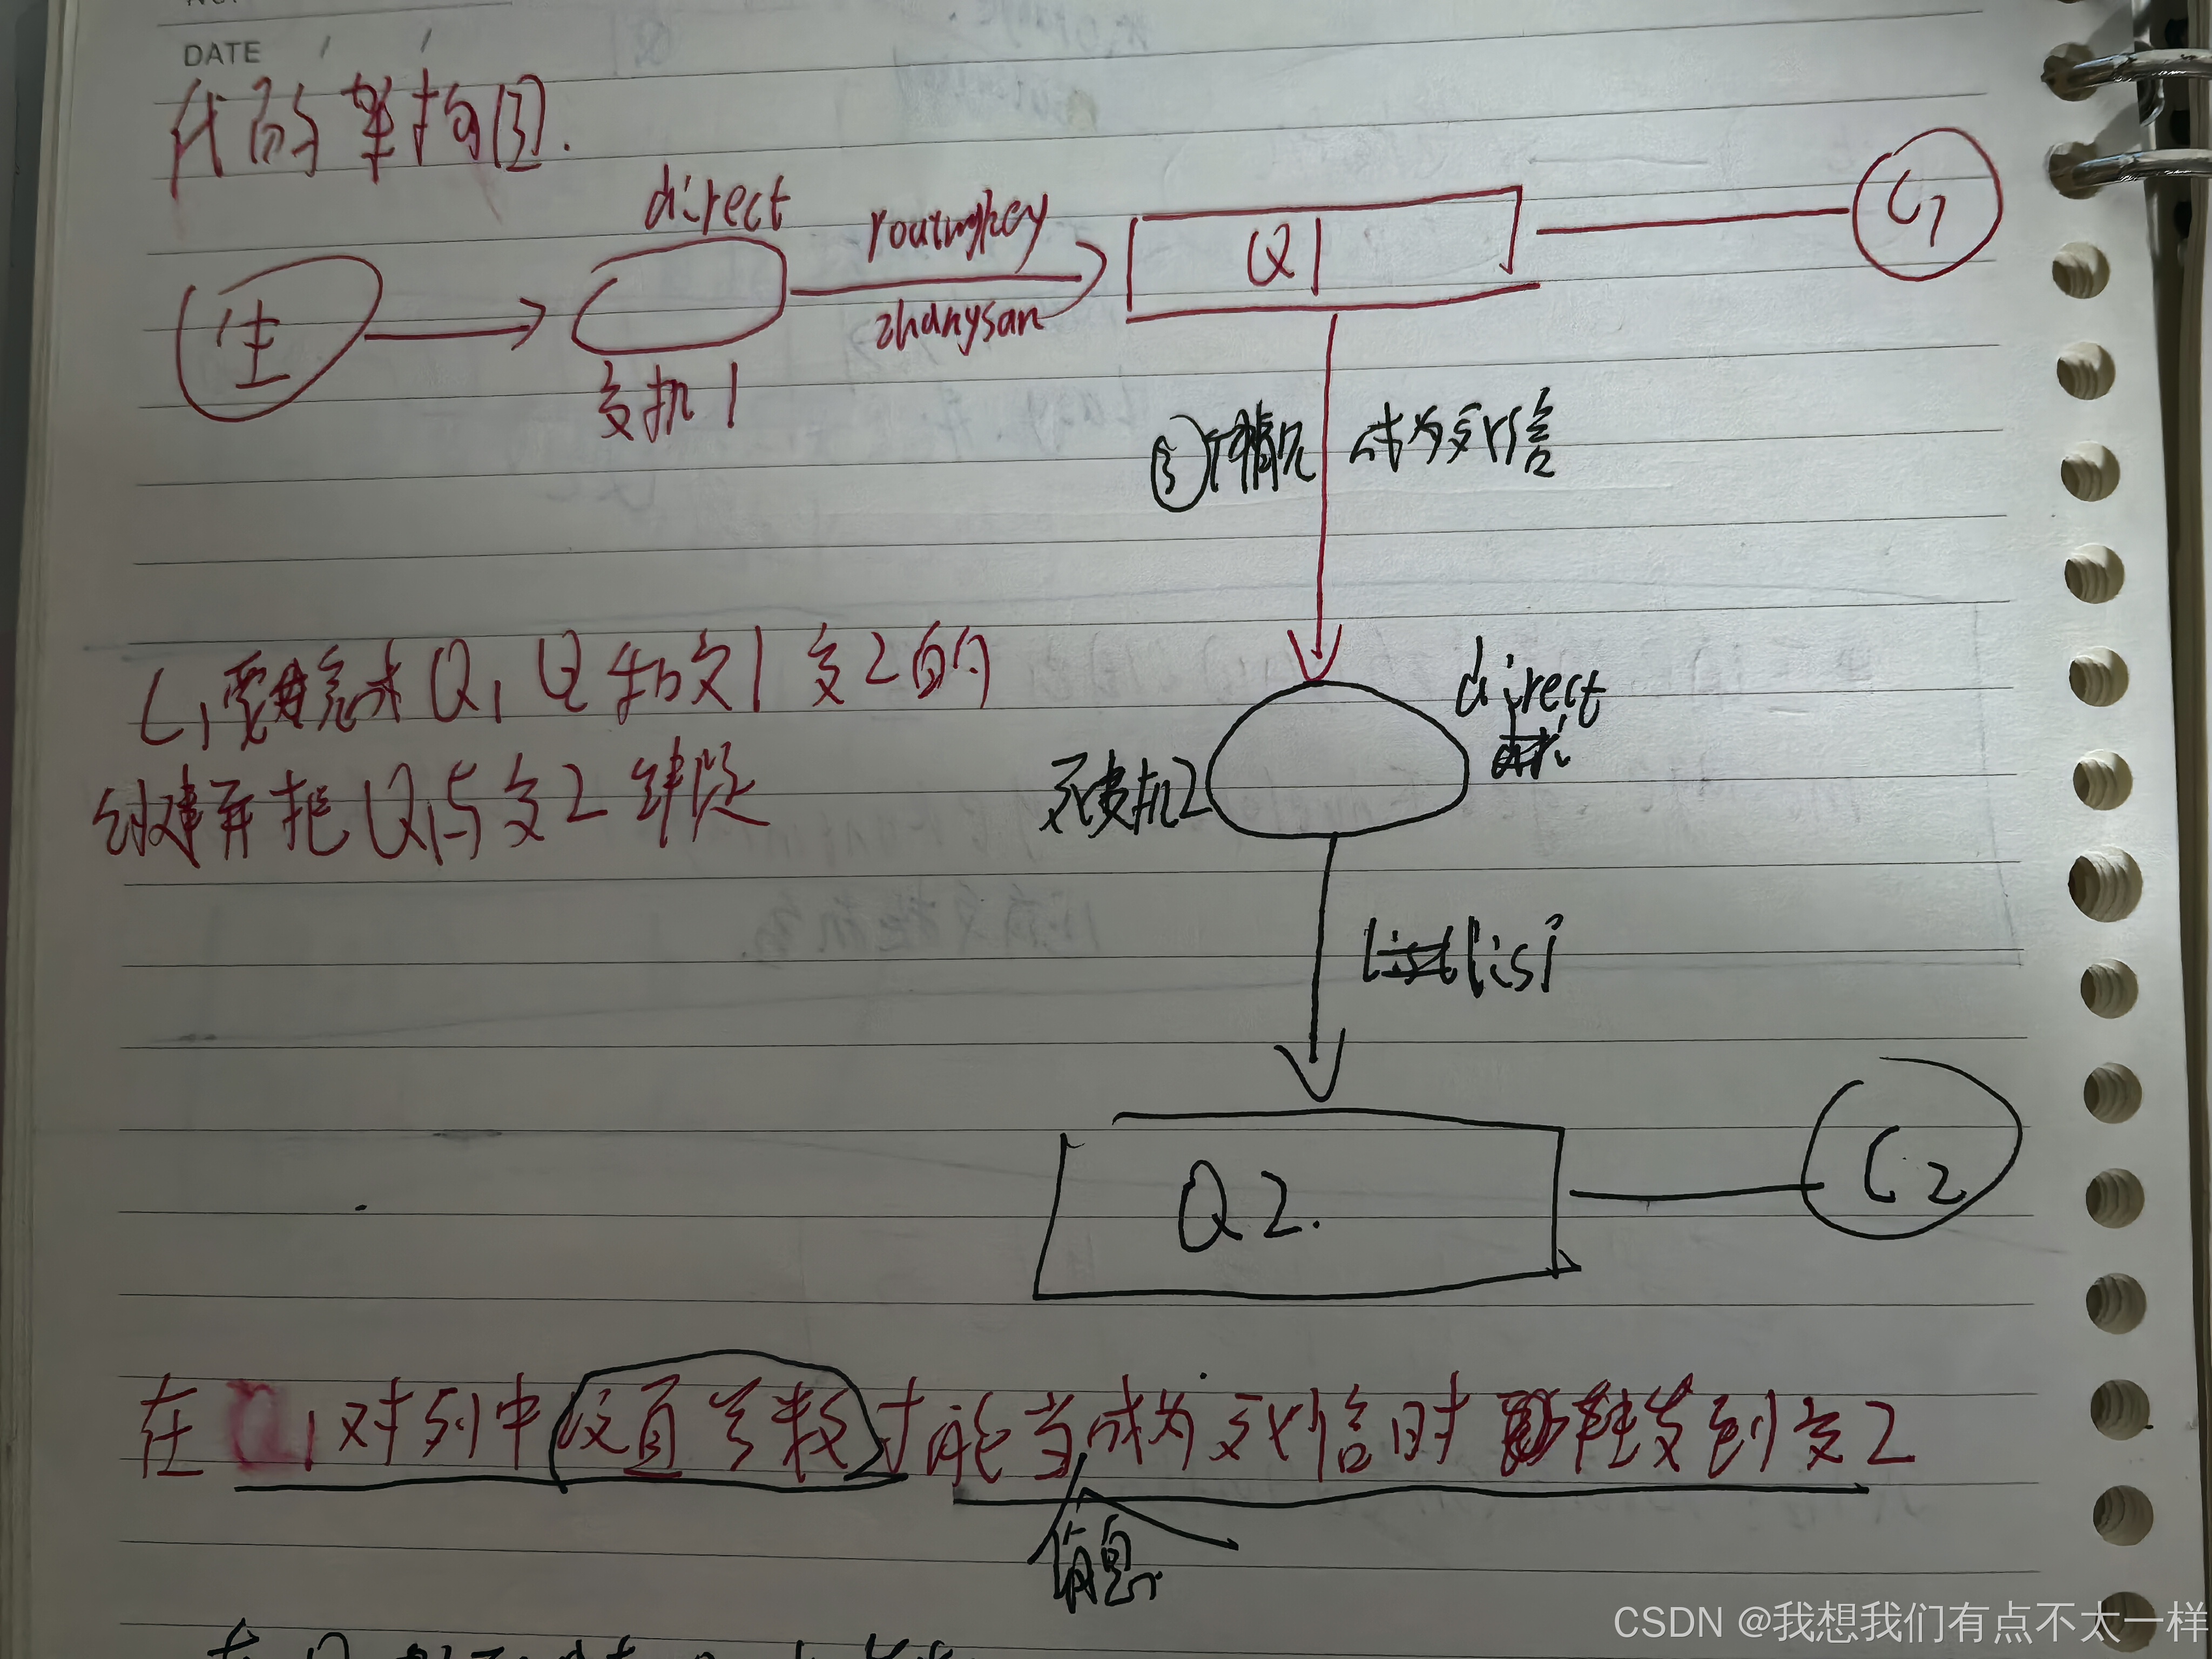 DATE / /
代码架构图.
direct
routingkey
生
Q1
C1
zhangsan
交机1
③个情况 成为死信
C1要完成Q1 Q2和交1交2的
direct
创建并把Q1与交2绑定
死交机2
lisi
Q2.
C2
在Q1对列中设置参数才能当成为死信时 转发到交2
消息
CSDN @我想我们有点不太一样